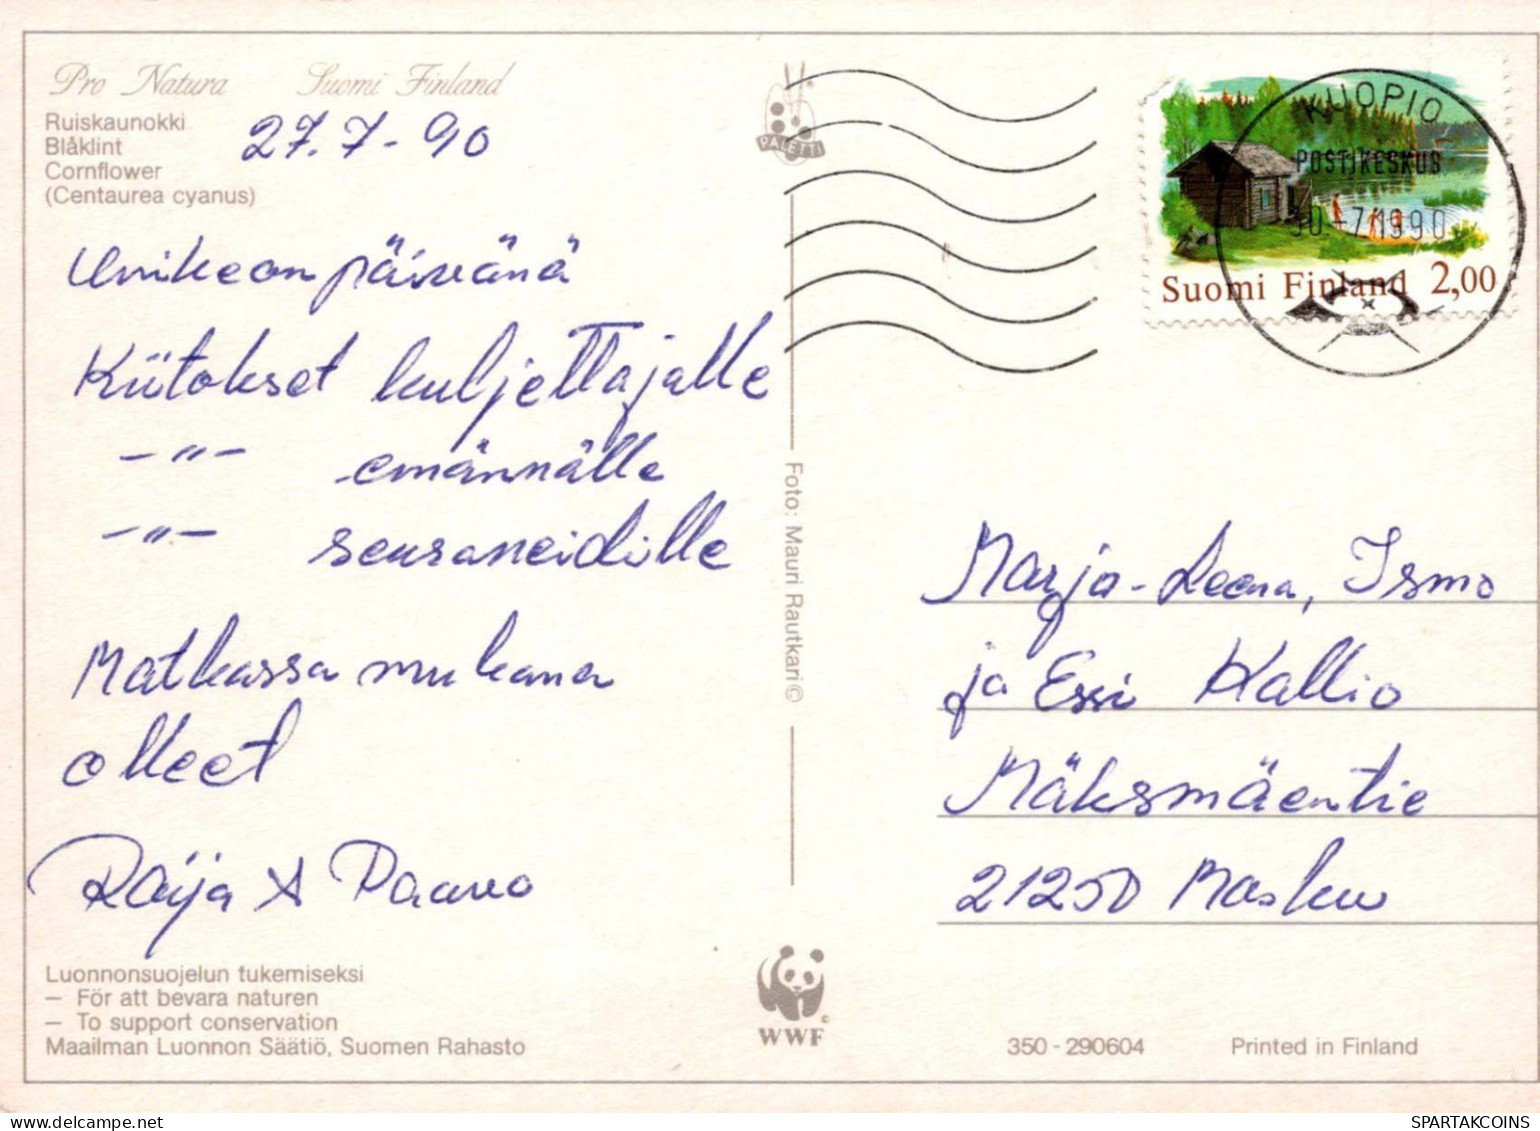 Pro Natura Suomi Finland
Ruiskaunokki
Blåklint
Cornflower
(Centaurea cyanus)
27.7-90
Unikeonpäivänä
Kiitokset kuljettajalle
-"- emännälle
-"- seuraneidille
Matkassa mukana
olleet
Raija & Paavo
Luonnonsuojelun tukemiseksi
– För att bevara naturen
– To support conservation
Maailman Luonnon Säätiö, Suomen Rahasto
PALETTI
Foto: Mauri Rautkari ©
WWF
KUOPIO
POSTIKESKUS
30.-7.1990
Suomi Finland 2,00
Marja-Leena, Ismo
ja Essi Kallio
Mäksmäentie
21250 Masku
350 - 290604 Printed in Finland
SPARTAKCOINS